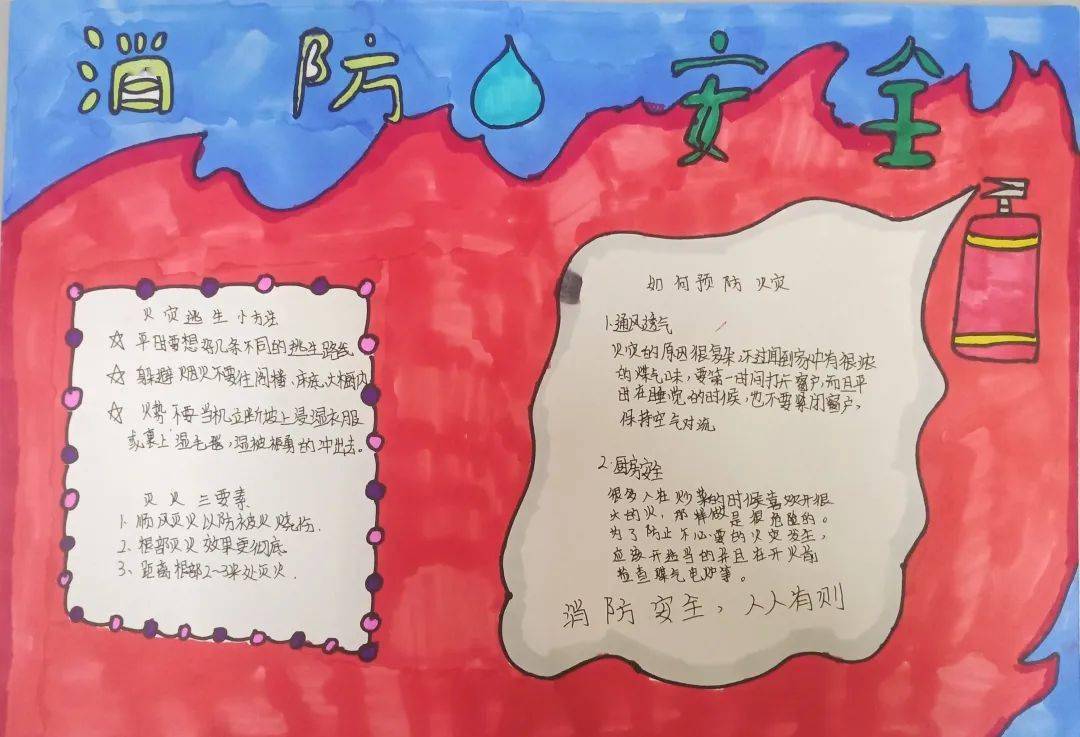 消防安全
火灾逃生小方法
☆ 平日要想好几条不同的逃生路线
☆ 躲避烟火不要往阁楼、床底、大橱内
☆ 火势不要当机立断披上浸湿衣服
或裹上湿毛毯,湿被褥勇的冲出去。
灭火三要素
1、顺风灭火以防被火烧伤.
2、根部灭火效果要彻底
3、距离根部2-3米处灭火.
如何预防火灾
1.通风透气
火灾的原因很复杂,不过闻到家中有很浓
的煤气味,要第一时间打开窗户,而且平
日在睡觉的时候,也不要紧闭窗户,
保持空气对流
2.厨房安全
很多人在炒菜的时候喜欢开很
大的火,那样做是很危险的。
为了防止不必要的火灾发生,
应该开适当的并且在开火前
检查煤气电炉等。
消防安全,人人有则